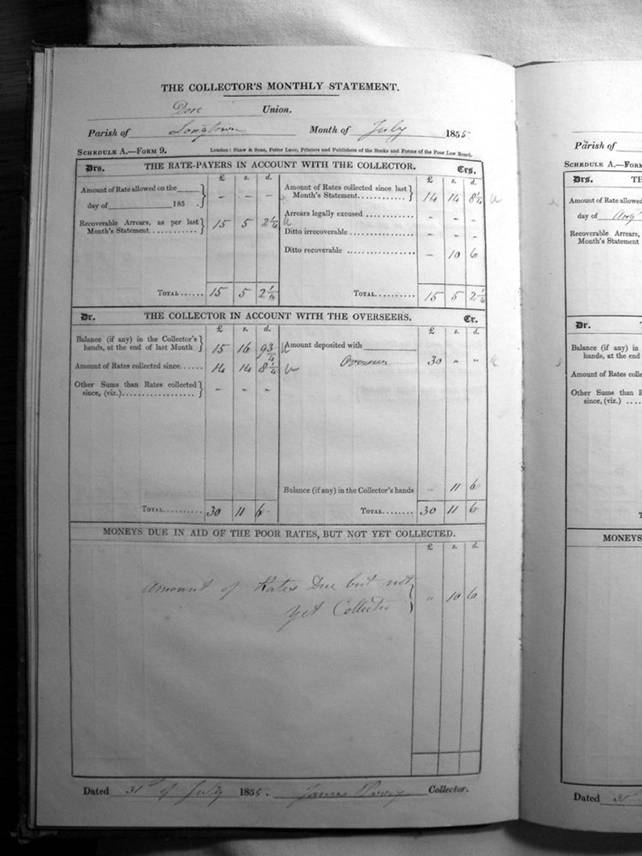 THE COLLECTOR'S MONTHLY STATEMENT.
Dore Union.
Parish of Longtown Month of July 1855
SCHEDULE A.—FORM 9. London: Shaw & Sons, Fetter Lane, Printers and Publishers of the Books and Forms of the Poor Law Board.
Drs. THE RATE-PAYERS IN ACCOUNT WITH THE COLLECTOR. Crs.
£ s. d. £ s. d.
Amount of Rate allowed on the
day of 185 . - - -
Recoverable Arrears, as per last
Month's Statement 15 5 2¼
TOTAL 15 5 2¼
Amount of Rates collected since last
Month's Statement 14 14 8¼
Arrears legally excused - - -
Ditto irrecoverable - - -
Ditto recoverable - 10 6
TOTAL 15 5 2¼
Dr. THE COLLECTOR IN ACCOUNT WITH THE OVERSEERS. Cr.
£ s. d. £ s. d.
Balance (if any) in the Collector's
hands, at the end of last Month 15 16 9¾
Amount of Rates collected since 14 14 8¼
Other Sums than Rates collected
since, (viz.) - - -
TOTAL 30 11 6
Amount deposited with
Overseer 30 - -
Balance (if any) in the Collector's hands - 11 6
TOTAL 30 11 6
MONEYS DUE IN AID OF THE POOR RATES, BUT NOT YET COLLECTED.
£ s. d.
Amount of Rates Due but not
yet Collected " 10 6
Dated 31st of July 1855. James Collector.
Parish of
SCHEDULE A.—FORM
Drs. TH
Amount of Rate allowed
day of Aug
Recoverable Arrears,
Month's Statement
T
Dr. T
Balance (if any) in
hands, at the en
Amount of Rates colle
Other Sums than R
since, (viz.)
T
MONEYS
Dated 31